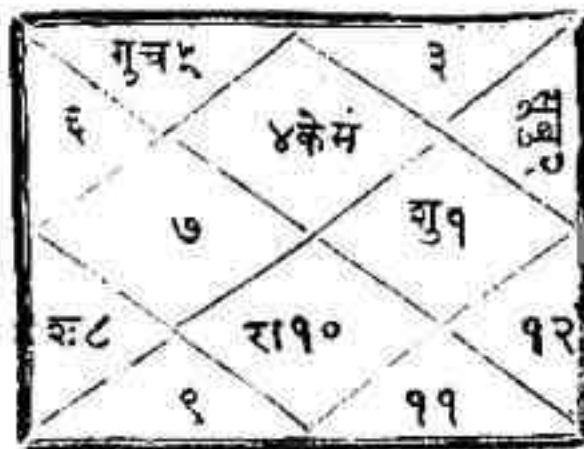 गुचं५
३
४केमं
६
सूबु२
७
शु१
शः८
रा१०
१२
९
११